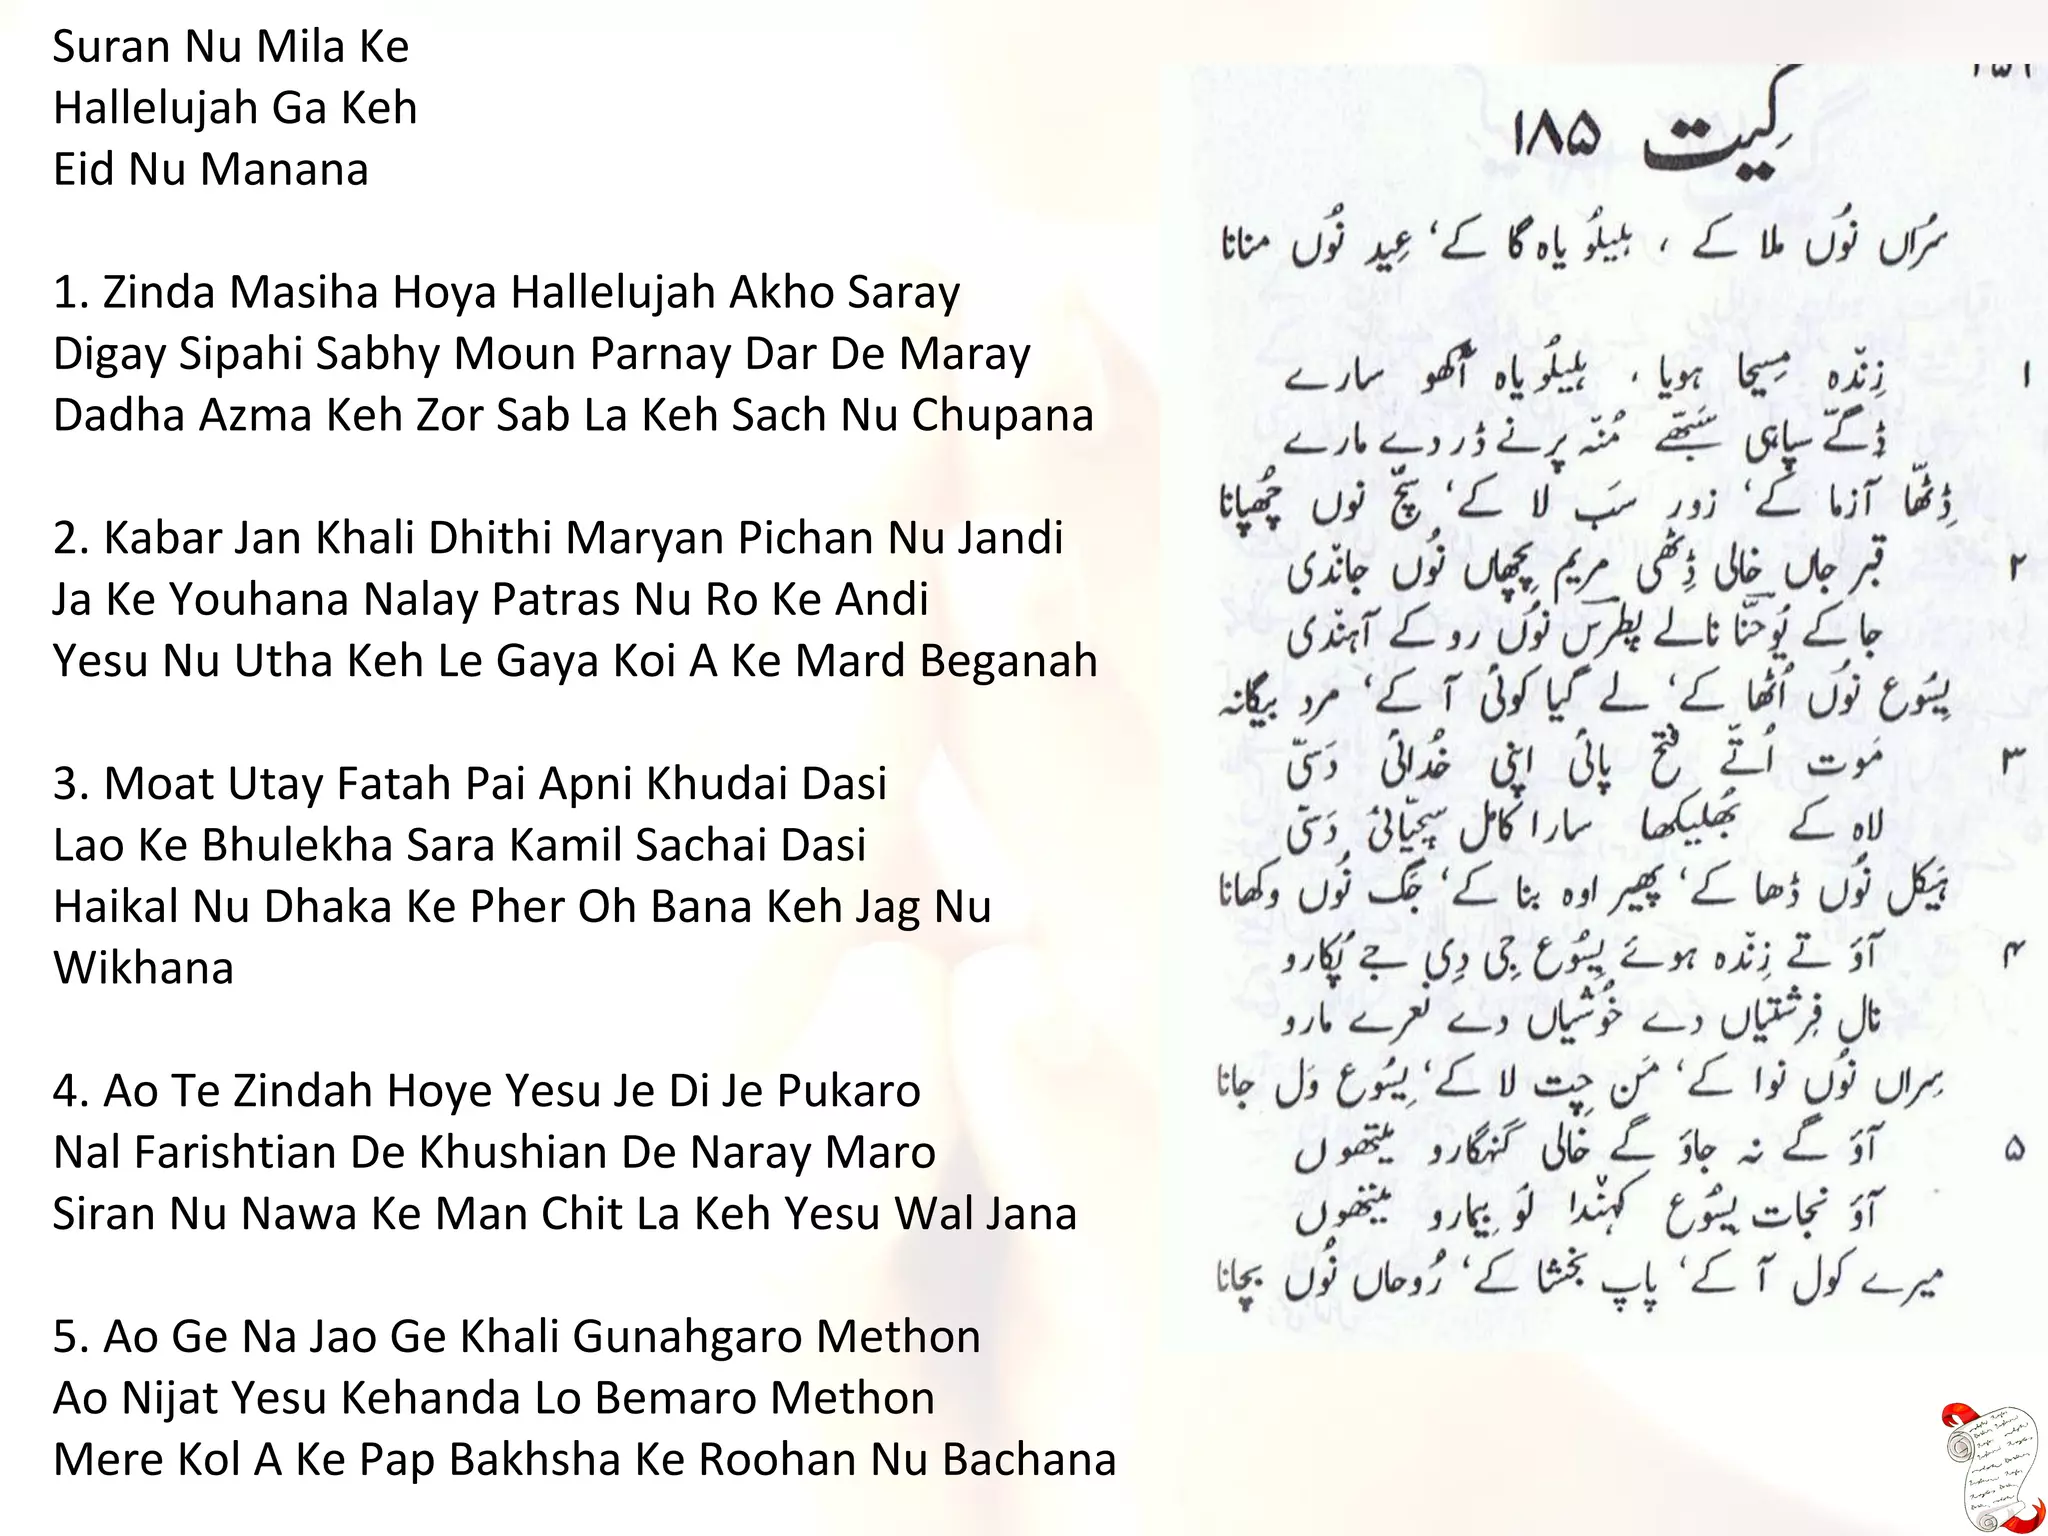 Suran Nu Mila Ke
Hallelujah Ga Keh
Eid Nu Manana
1. Zinda Masiha Hoya Hallelujah Akho Saray
Digay Sipahi Sabhy Moun Parnay Dar De Maray
Dadha Azma Keh Zor Sab La Keh Sach Nu Chupana
2. Kabar Jan Khali Dhithi Maryan Pichan Nu Jandi
Ja Ke Youhana Nalay Patras Nu Ro Ke Andi
Yesu Nu Utha Keh Le Gaya Koi A Ke Mard Beganah
3. Moat Utay Fatah Pai Apni Khudai Dasi
Lao Ke Bhulekha Sara Kamil Sachai Dasi
Haikal Nu Dhaka Ke Pher Oh Bana Keh Jag Nu
Wikhana
4. Ao Te Zindah Hoye Yesu Je Di Je Pukaro
Nal Farishtian De Khushian De Naray Maro
Siran Nu Nawa Ke Man Chit La Keh Yesu Wal Jana
5. Ao Ge Na Jao Ge Khali Gunahgaro Methon
Ao Nijat Yesu Kehanda Lo Bemaro Methon
Mere Kol A Ke Pap Bakhsha Ke Roohan Nu Bachana
گیت ۱۸۵
سُراں نُوں ملا کے ، ہلیلُویاہ گا کے، عِید نُوں منانا
۱ زِنّدہ مسِیحا ہویا ، ہلیلُویاہ آکھو سارے
ڈِگّے سپاہی سَبّھے مُنّہ پرنے ڈر دے مارے
ڈِٹھّا آزما کے، زور سَب لا کے، سچّ نوں چُھپانا
۲ قبر جاں خالی ڈِٹھّی مریم پِچھاں نُوں جانّدی
جا کے یُوحنّا نالے پطرس نُوں رو کے آہنّدی
یِسُوع نُوں اُٹھا کے، لے گیا کوئی آ کے، مرد بیگانہ
۳ مَوت اُتّے فتح پائی اپنی خُدائی دَسّی
لاہ کے بُھلیکھا سارا کامل سچّیائی دَسّی
ہَیکل نُوں ڈھا کے، پھیر اوہ بنا کے، جَگ نُوں وکھانا
۴ آؤ تے زِنّدہ ہوئے یِسُوع جی دِی جے پُکارو
نال فِرشتیاں دے خُوشیاں دے نعرے مارو
سِراں نُوں نوا کے، مَن چِت لا کے، یِسُوع وَل جانا
۵ آؤ گے نہ جاؤ گے خالی گنہگارو میتھوں
آؤ نجات یِسُوع کہنّدا لَو بِیمارو میتھوں
میرے کول آ کے، پاپ بخشا کے، رُوحاں نُوں بچانا